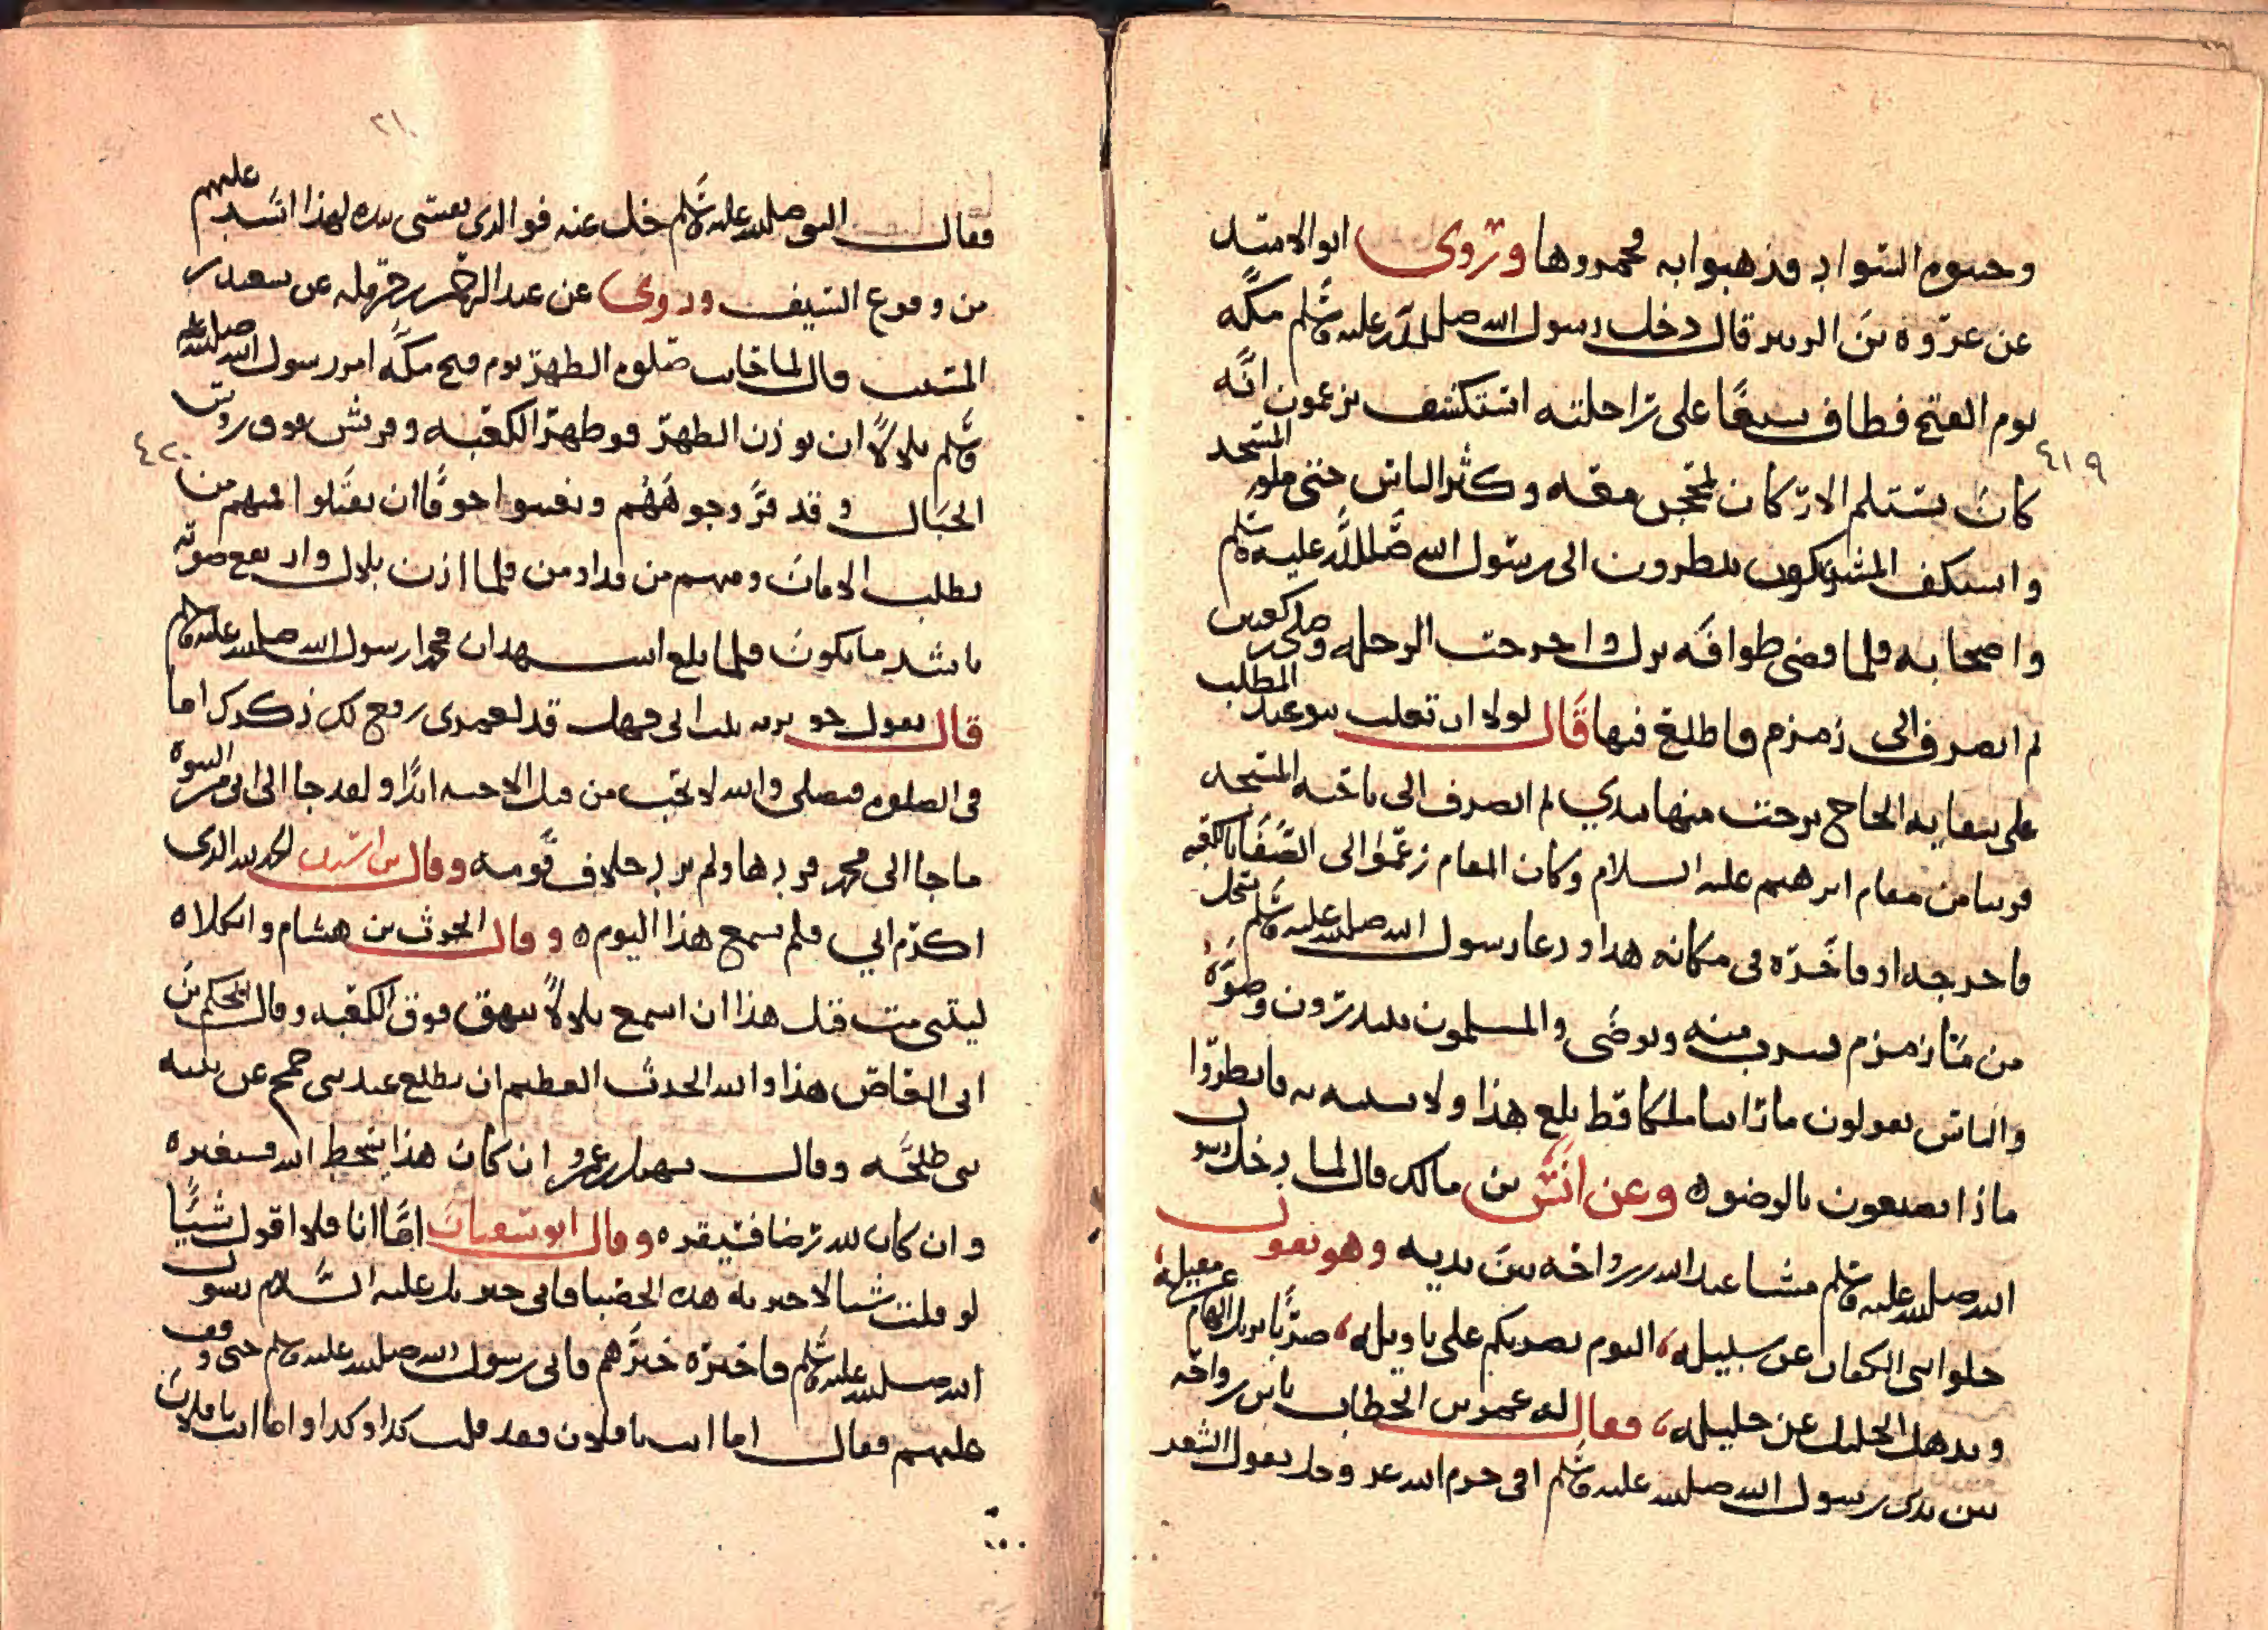 وحسوم السواد فذهبوا به محمروها وروى ابو الاسد
عن عروة بن الزبير قال دخل رسول الله صلى الله عليه وسلم مكه
يوم الفتح فطاف سبعا على راحلته استكشف يزعمون انه
٤١٩
كان يستلم الاركان بمحجن معه وكثر الناس حتى ملو المسجد
واستكف المشركون ينظرون الى رسول الله صلى الله عليه وسلم
واصحابه فلما قضى طوافه نزل واخرجت الرحله وصلى ركعتين
ثم انصرف الى زمزم فاطلع فيها قال لولا ان تغلب بنو عبد المطلب
على سقايه الحاج نزحت منها بيدي ثم انصرف الى ناحيه المسجد
قريبا من مقام ابرهيم عليه السلام وكان المقام زعموا الى الصفا بالكعبه
فاخرجه او فاخره في مكانه هذا ودعا رسول الله صلى الله عليه وسلم بسجل
من ما زمزم فشرب منه وتوضى والمسلمون يبتدرون وضوه
والناس يقولون ما راينا ملكا قط بلغ هذا ولا يشبه به فانظروا
ماذا يصنعون بالوضوء وعن انس بن مالك قال لما دخل رسول
الله صلى الله عليه وسلم مشا عبد الله بن رواحه بين يديه وهو يقول
خلوا بني الكفار عن سبيله، اليوم نضربكم على تاويله، ضربا يزيل الهام عن مقيله،
ويذهل الخليل عن خليله، فقال له عمر بن الخطاب يا بن رواحه
بين يدي رسول الله صلى الله عليه وسلم افي حرم الله عز وجل يقول الشعر
٢١٠
فقال النبي صلى الله عليه وسلم خل عنه فو الذي نفسي بيده لهذا اشد عليهم
من وقوع السيف وروى عن عبد الرحمن بن حرمله عن سعيد بن
المسيب قال لما حانت صلوه الظهر يوم فتح مكه امر رسول الله صلى الله عليه
وسلم بلالا ان يوذن الظهر فوظهر الكعبه وقريش فوق روس
٤٢٠
الجبال وقد فر وجوههم وتغيبوا خوفا ان يقتلوا فمنهم من
يطلب الامان ومنهم من قد اومن فلما اذن بلال ورفع صوته
باشد ما يكون فلما بلغ اشهد ان محمدا رسول الله صلى الله عليه وسلم
قال يقول جويريه بنت ابي جهل قد لعمري رفع لك ذكرك اما
في الصلوه فنصلي والله لا نحب من قتل الاحبه ابدا ولقد جا الى ابي من النبوه
ما جا الى محمد فردها ولم يرد خلاف قومه وقال بن اسيد الحمد لله الذي
اكرم ابي فلم يسمع هذا اليوم ه وقال الحرث بن هشام واثكلاه
ليتني مت قبل هذا ان اسمع بلالا ينهق فوق الكعبه وقال الحكم بن
ابي العاص هذا والله الحدث العظيم ان يطلع عبد بني جمح عن بنيه
بني طلحه وقال سهيل بن عمرو ان كان هذا بسخط الله فسيغيره
وان كان لله رضا فسيقره ه وقال ابو سفيان اما انا فلا اقول شيا
لو قلت شيا لاخبرته هذه الحصبا فاتى جبريل عليه السلام رسول
الله صلى الله عليه وسلم فاخبره خبرهم فاتى رسول الله صلى الله عليه وسلم حتى وقف
عليهم فقال اما انت يا فلان فقد قلت كذا وكذا واما انت يا فلان